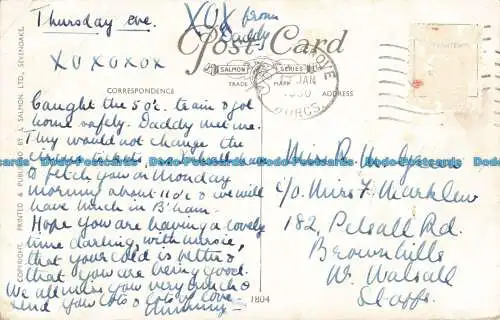 Thursday eve.
XOX from
Daddy
XOXOXOX
Post Card
SALMON SERIES
TRADE MARK
CORRESPONDENCE
ADDRESS
JAN
COPYRIGHT. PRINTED & PUBLISHED BY J. SALMON LTD., SEVENOAKS.
Caught the 5 o'c. train & got
home safely. Daddy met me.
They would not change the
to fetch you on Monday
morning about 11 o'c & we will
have lunch in B'ham.
Hope you are having a lovely
time darling, with nursie,
that your cold is better &
that you are being good.
We all miss you very much &
send you lots & lots of love.
Mummy
Miss R.
c/o Miss F. Marklew
182, Pelsall Rd.
Brownhills
Nr. Walsall
Staffs.
1804